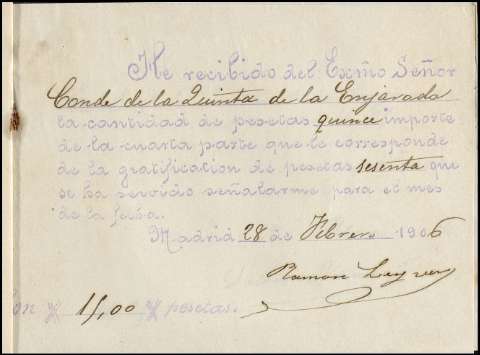 He recibido del Excmo Señor
Conde de la Quinta de la Enjarada
la cantidad de pesetas quince importe
de la cuarta parte que le corresponde
de la gratificacion de pesetas sesenta que
se ha servido señalarme para el mes
de la fecha.
Madrid 28 de Febrero 1906
Ramon
on # 15,00 # pesetas.